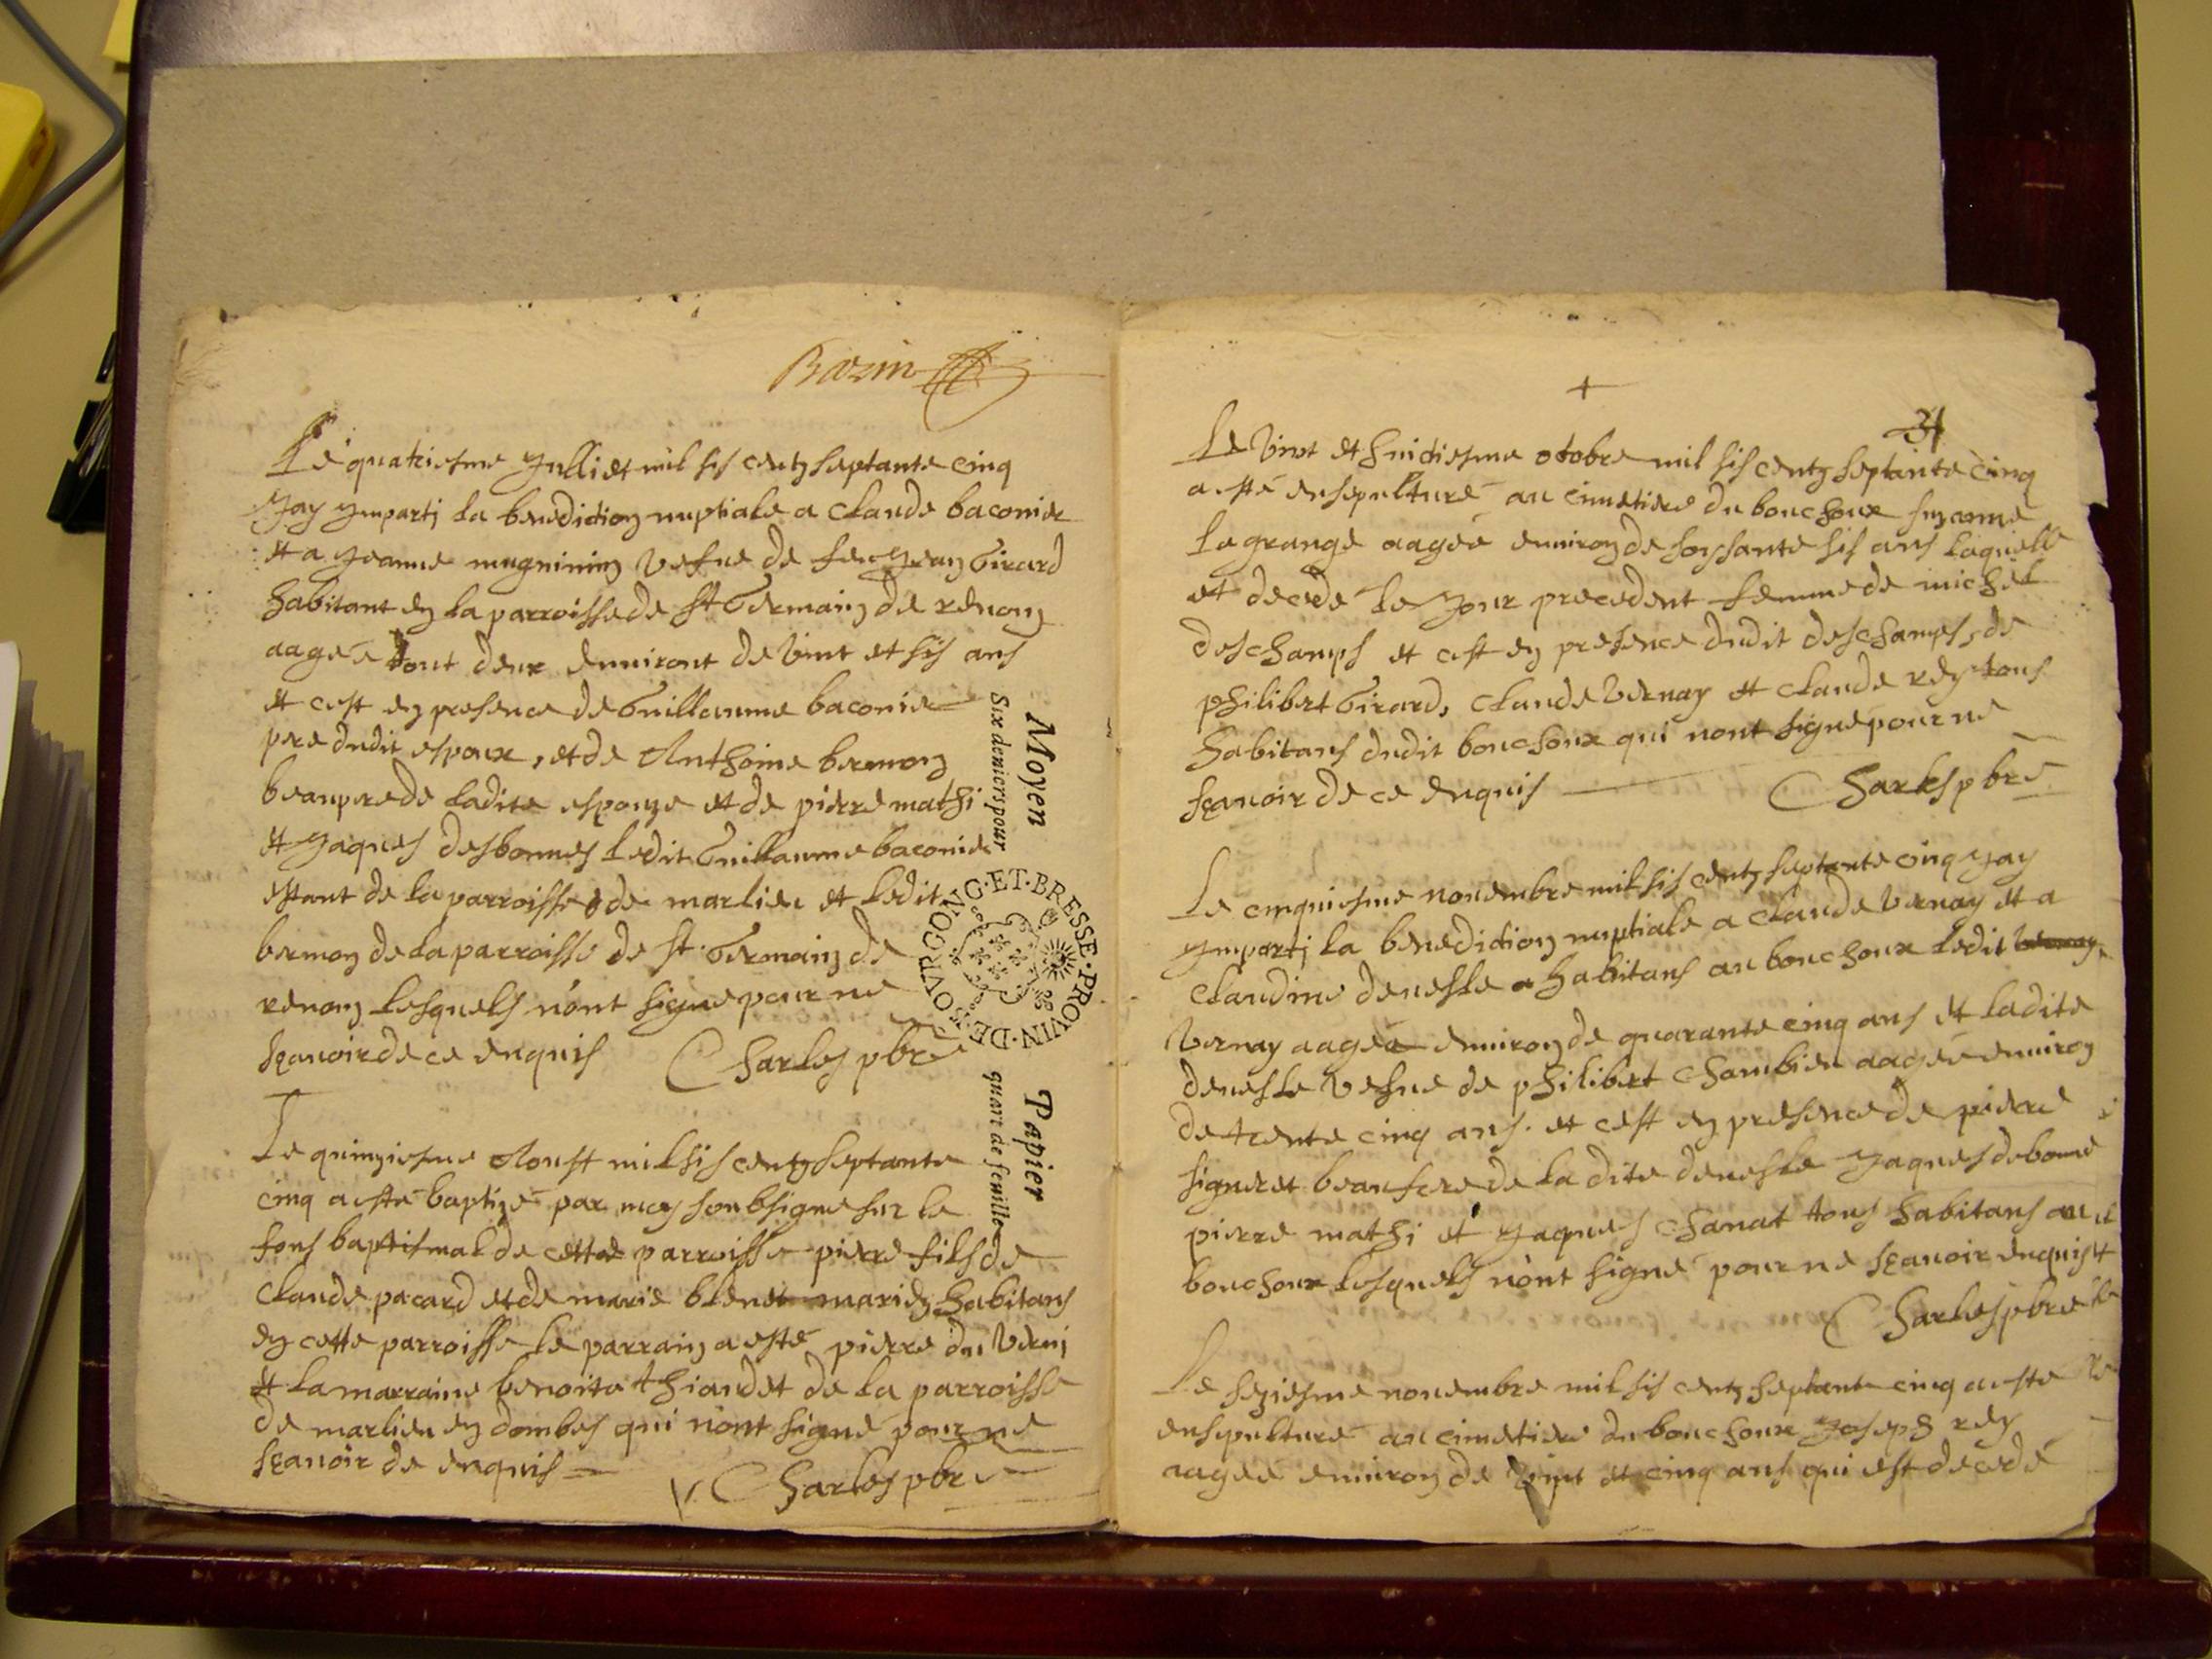 Bazin
Le quatriesme Jullict mil sis centz septante cinq
Jay ymparti la benediction nuptiale a Claude baconier
et a Jeanne mugninin vefue de feu Jean Girard
habitant en la parroisse de St Germain de renon
aagée tout deux enuiront de vint et sis ans
et cest en presence de Guillaume baconier
pere dudit espoux, et de Anthoine bermon
beaupere de ladite espouze et de pierre mathi
et Jaques desbonnes ledit Guillaume baconier
estant de la parroisse de marlieu et ledit
bermon de la parroisse de St. Germain de
renon lesquels n'ont signe pour ne
sçauoir de ce enquis Charles pbre
Le quinziesme Aoust mil sis centz septante
cinq a esté baptizé par moy soubsigne sur le
fons baptismal de cette parroisse pierre fils de
Claude pacard et de marie blenet mariez habitans
en cette parroisse le parrain a esté pierre du Verni
et la marraine benoite thiaudet de la parroisse
de marlieu en dombes qui n'ont signé pour ne
sçauoir de enquis Charles pbre
Moyen
Six deniers pour
DE·BOVRGONG·ET·BRESSE·PROVIN
Papier
quart de feuille
31
Le Vint et huictiesme octobre mil sis centz septante cinq
a esté ensepulturé au cimetiere du bouchoux suzanne
Lagrange aagée enuiron de soissante sis ans laquelle
et decede le Jour precedent femme de michel
deschamps et cest en presence dudit deschamps, de
philibert Girard, Claude Vernay et Claude rey tous
habitans dudit bouchoux qui nont signé pour ne
sçauoir de ce enquis Charles pbre
Le cinquiesme nouembre mil sis centz septante cinq Jay
ymparti la benediction nuptiale a Claude Vernay et a
Claudine denesle habitans au bouchoux ledit
Vernay aagée enuiron de quarante cinq ans et ladite
denesle vefue de philibert Chambieu aagée enuiron
de trente cinq ans. et cest en presence de pierre
signeret beaufrere de la dite denesle Jaques debonne
pierre mathi et Jaques Chanat tous habitans au
bouchoux lesquels n'ont signé pour ne sçauoir enquis
Charles pbre
Le seziesme nouembre mil sis centz septante cinq a esté
ensepulturé au cimetiere du bouchoux Joseph rey
aagée enuiron de Vint et cinq ans qui est décedé